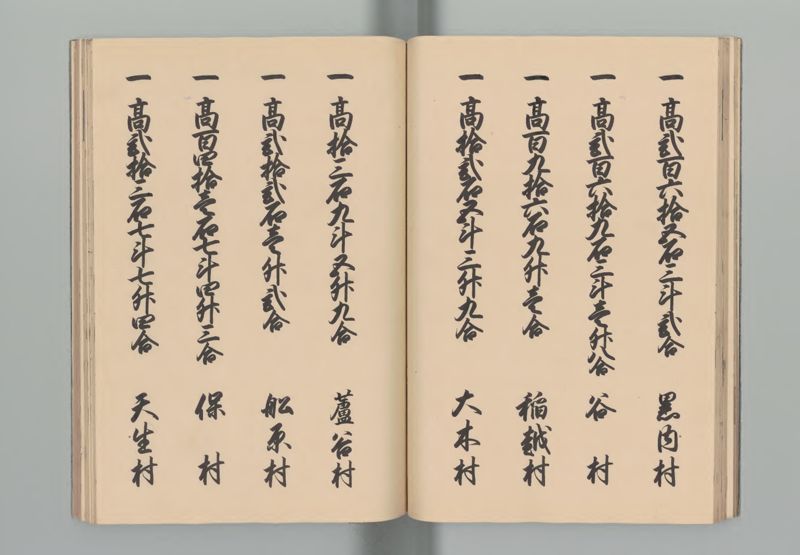 一 高弐百六拾五石三斗弐合 黒内村
一 高弐百六拾九石三斗壱升八合 谷村
一 高百九拾六石九升壱合 稲越村
一 高拾弐石五斗三升九合 大木村
一 高拾三石九斗五升九合 蘆谷村
一 高弐拾弐石壱升弐合 舩原村
一 高百四拾壱石七斗四升三合 保村
一 高弐拾三石七斗七升四合 天生村